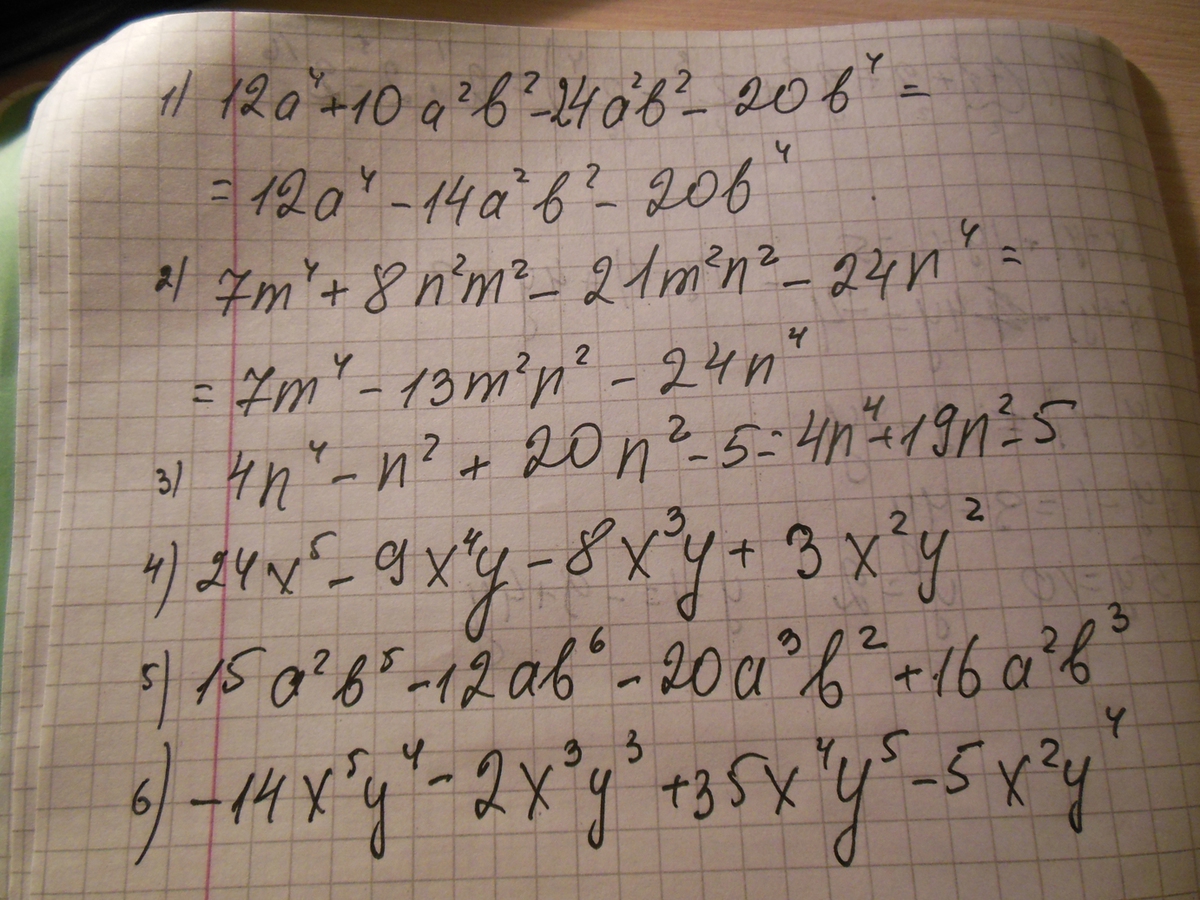 1) 12a⁴+10a²b²-24a²b²-20b⁴=
=12a⁴-14a²b²-20b⁴
2) 7m⁴+8n²m²-21m²n²-24n⁴=
=7m⁴-13m²n²-24n⁴
3) 4n⁴-n²+20n²-5=4n⁴+19n²-5
4) 24x⁵-9x⁴y-8x³y+3x²y²
5) 15a²b⁵-12ab⁶-20a³b²+16a²b³
6) -14x⁵y⁴-2x³y³+35x⁴y⁵-5x²y⁴